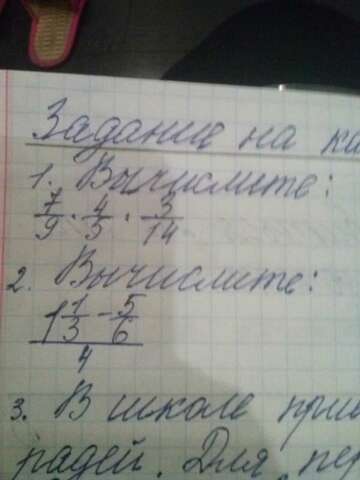 Задание на ка
1. Вычислите:
7/9 · 4/5 · 3/14
2. Вычислите:
(1 1/3 - 5/6)/4
3. В школе при
радей. Для пер